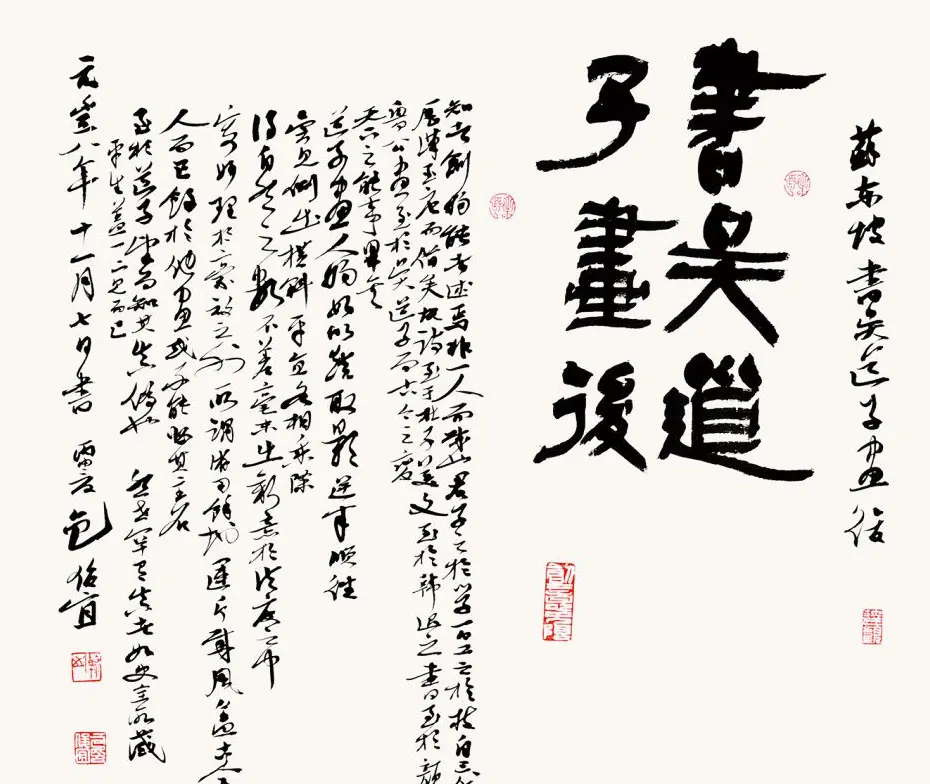 蘇东坡書吴道子画后
書吴道
子畫後
知者創物能者述焉非一人而成也君子之於學百工之於技自三代
歷漢至唐而備矣故詩至于杜子美文至於韓退之書至於顏
魯公画至於吴道子而古今之變
天下之能事畢矣
道子画人物如以燈取影逆来順往
旁見側出橫斜平直各相乘除
得自然之數不差毫末出新意於法度之中
寄妙理於豪放之外所謂游刃餘地運斤成風蓋古今
人而已餘於他画或不能必其主名
至於道子望而知其真偽也 然世罕有真者如史全叔所藏
平生蓋一二見而已
元豐八年十一月七日書